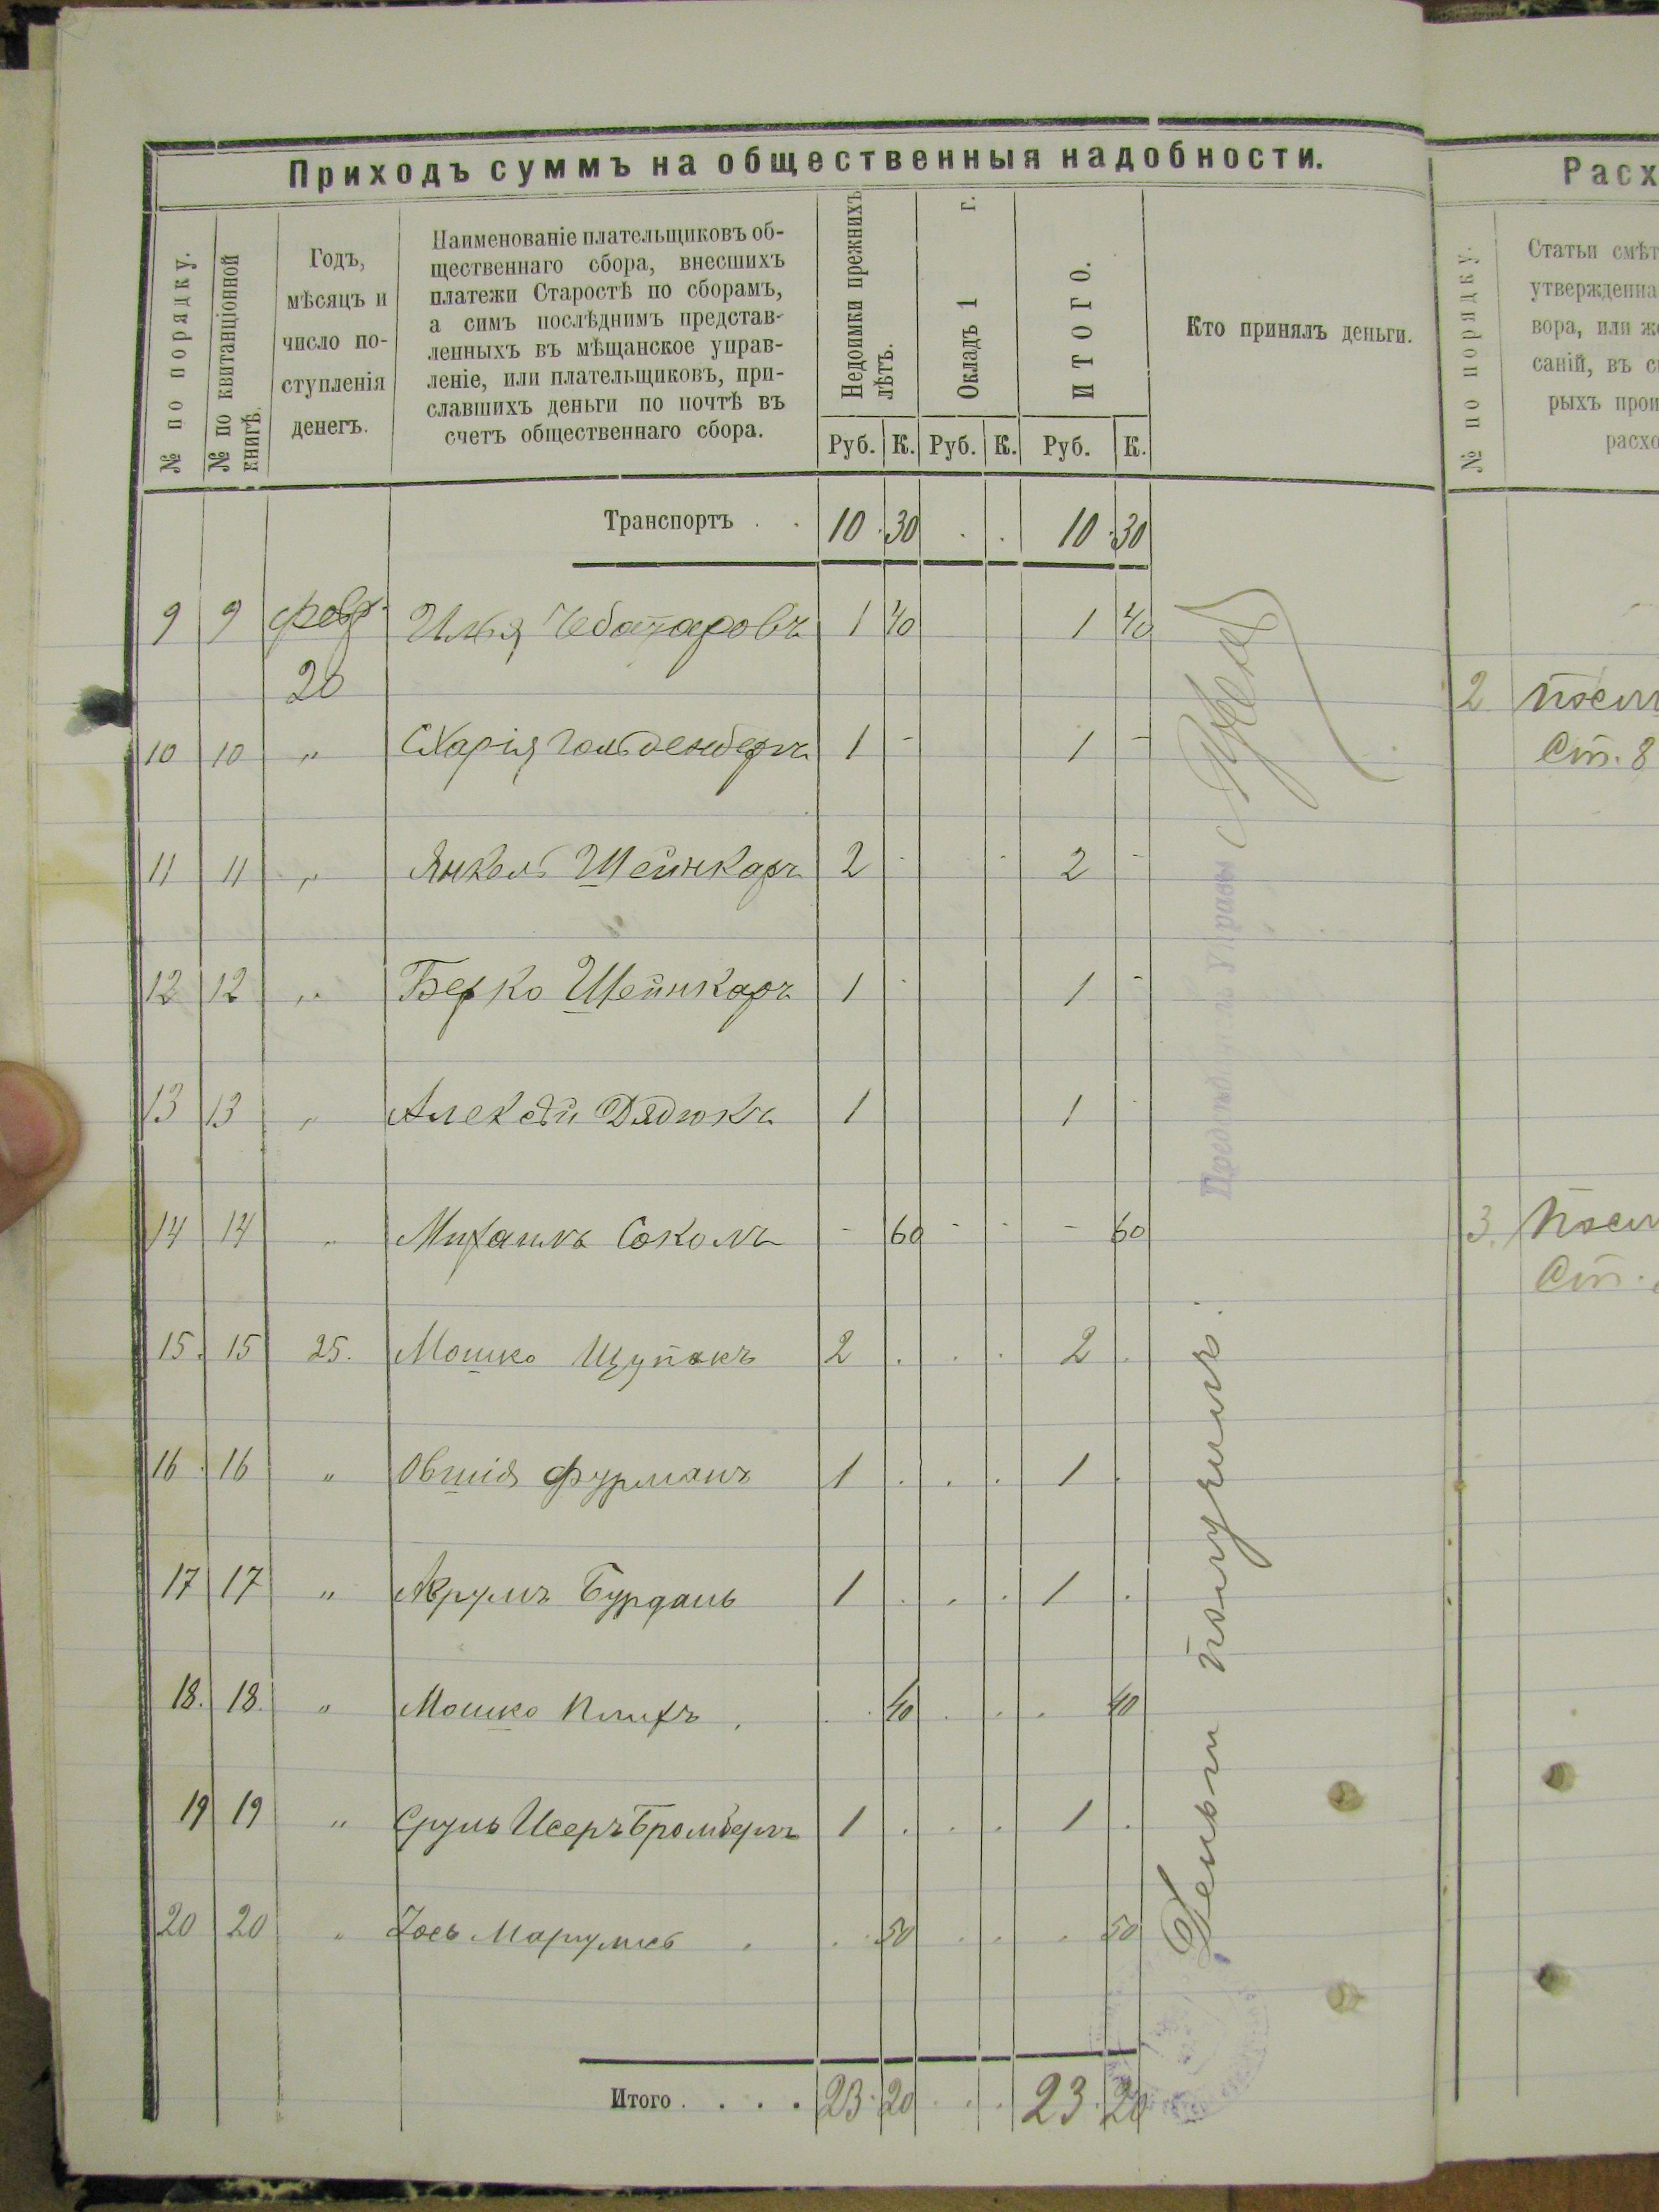 Приходъ суммъ на общественныя надобности.
№ по порядку.
№ по квитанціонной
книгѣ.
Годъ,
мѣсяцъ и
число по-
ступленія
денегъ.
Наименованіе плательщиковъ об-
щественнаго сбора, внесшихъ
платежи Старостѣ по сборамъ,
а симъ послѣднимъ представ-
ленныхъ въ мѣщанское управ-
леніе, или плательщиковъ, при-
славшихъ деньги по почтѣ въ
счетъ общественнаго сбора.
Недоимки прежнихъ
лѣтъ.
Окладъ 1 г.
ИТОГО.
Руб. К. Руб. К. Руб. К.
Кто принялъ деньги.
Транспортъ . . 10 30 . . 10 30
9 9 февр. Илья Чеботаровъ 1 40 1 40
20
10 10 „ Схарія Гольденбергъ 1 - 1 -
11 11 „ Янкель Шейнкаръ 2 - - 2 -
12 12 „ Берко Шейнкаръ 1 - 1 -
13 13 „ Алексѣй Дядюкъ 1 1 -
14 14 „ Михаилъ Соколъ - 60 - - - 60
15. 15 25. Мошко Щупакъ 2 . . . 2 .
16 16 „ Овшія Фурманъ 1 . . . 1 .
17 17 „ Бурдань 1 . . . 1 .
18. 18. „ Мошко . . 40 . . . 40
19 19 „ Сруль Исеръ Бромбергъ 1 . . . 1 .
20 20 „ . . 50 . . . 50
Итого . . . . 23 20 . . 23 20
Деньги получилъ:
Предсѣдатель Управы
Расх
№ по порядку.
Статьи смѣт
утвержденна
вора, или же
саній, въ с
рыхъ прои
расхо
2
Ст. 8
3.
Ст.